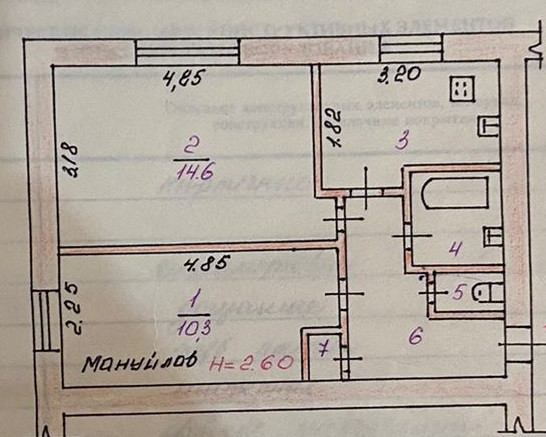 4,85
3.20
3.18
1.82
2
14.6
3
4
4.85
5
2.25
1
10,3
6
7
Мануйлов H=2.60